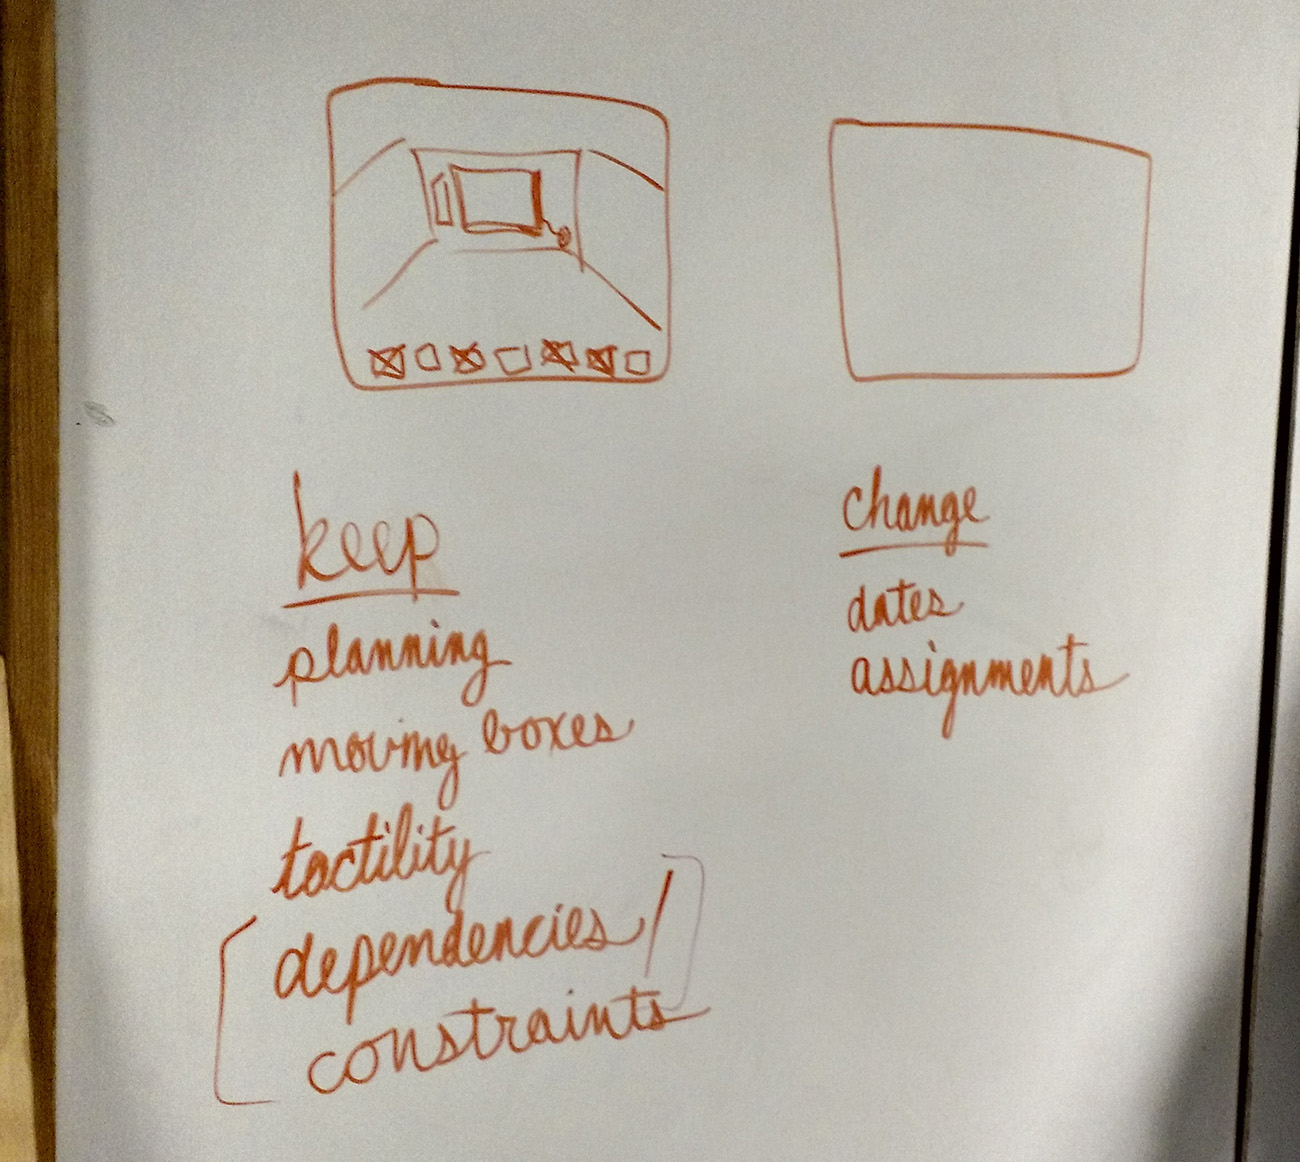 keep
planning
moving boxes
tactility
[dependencies/
constraints]
change
dates
assignments